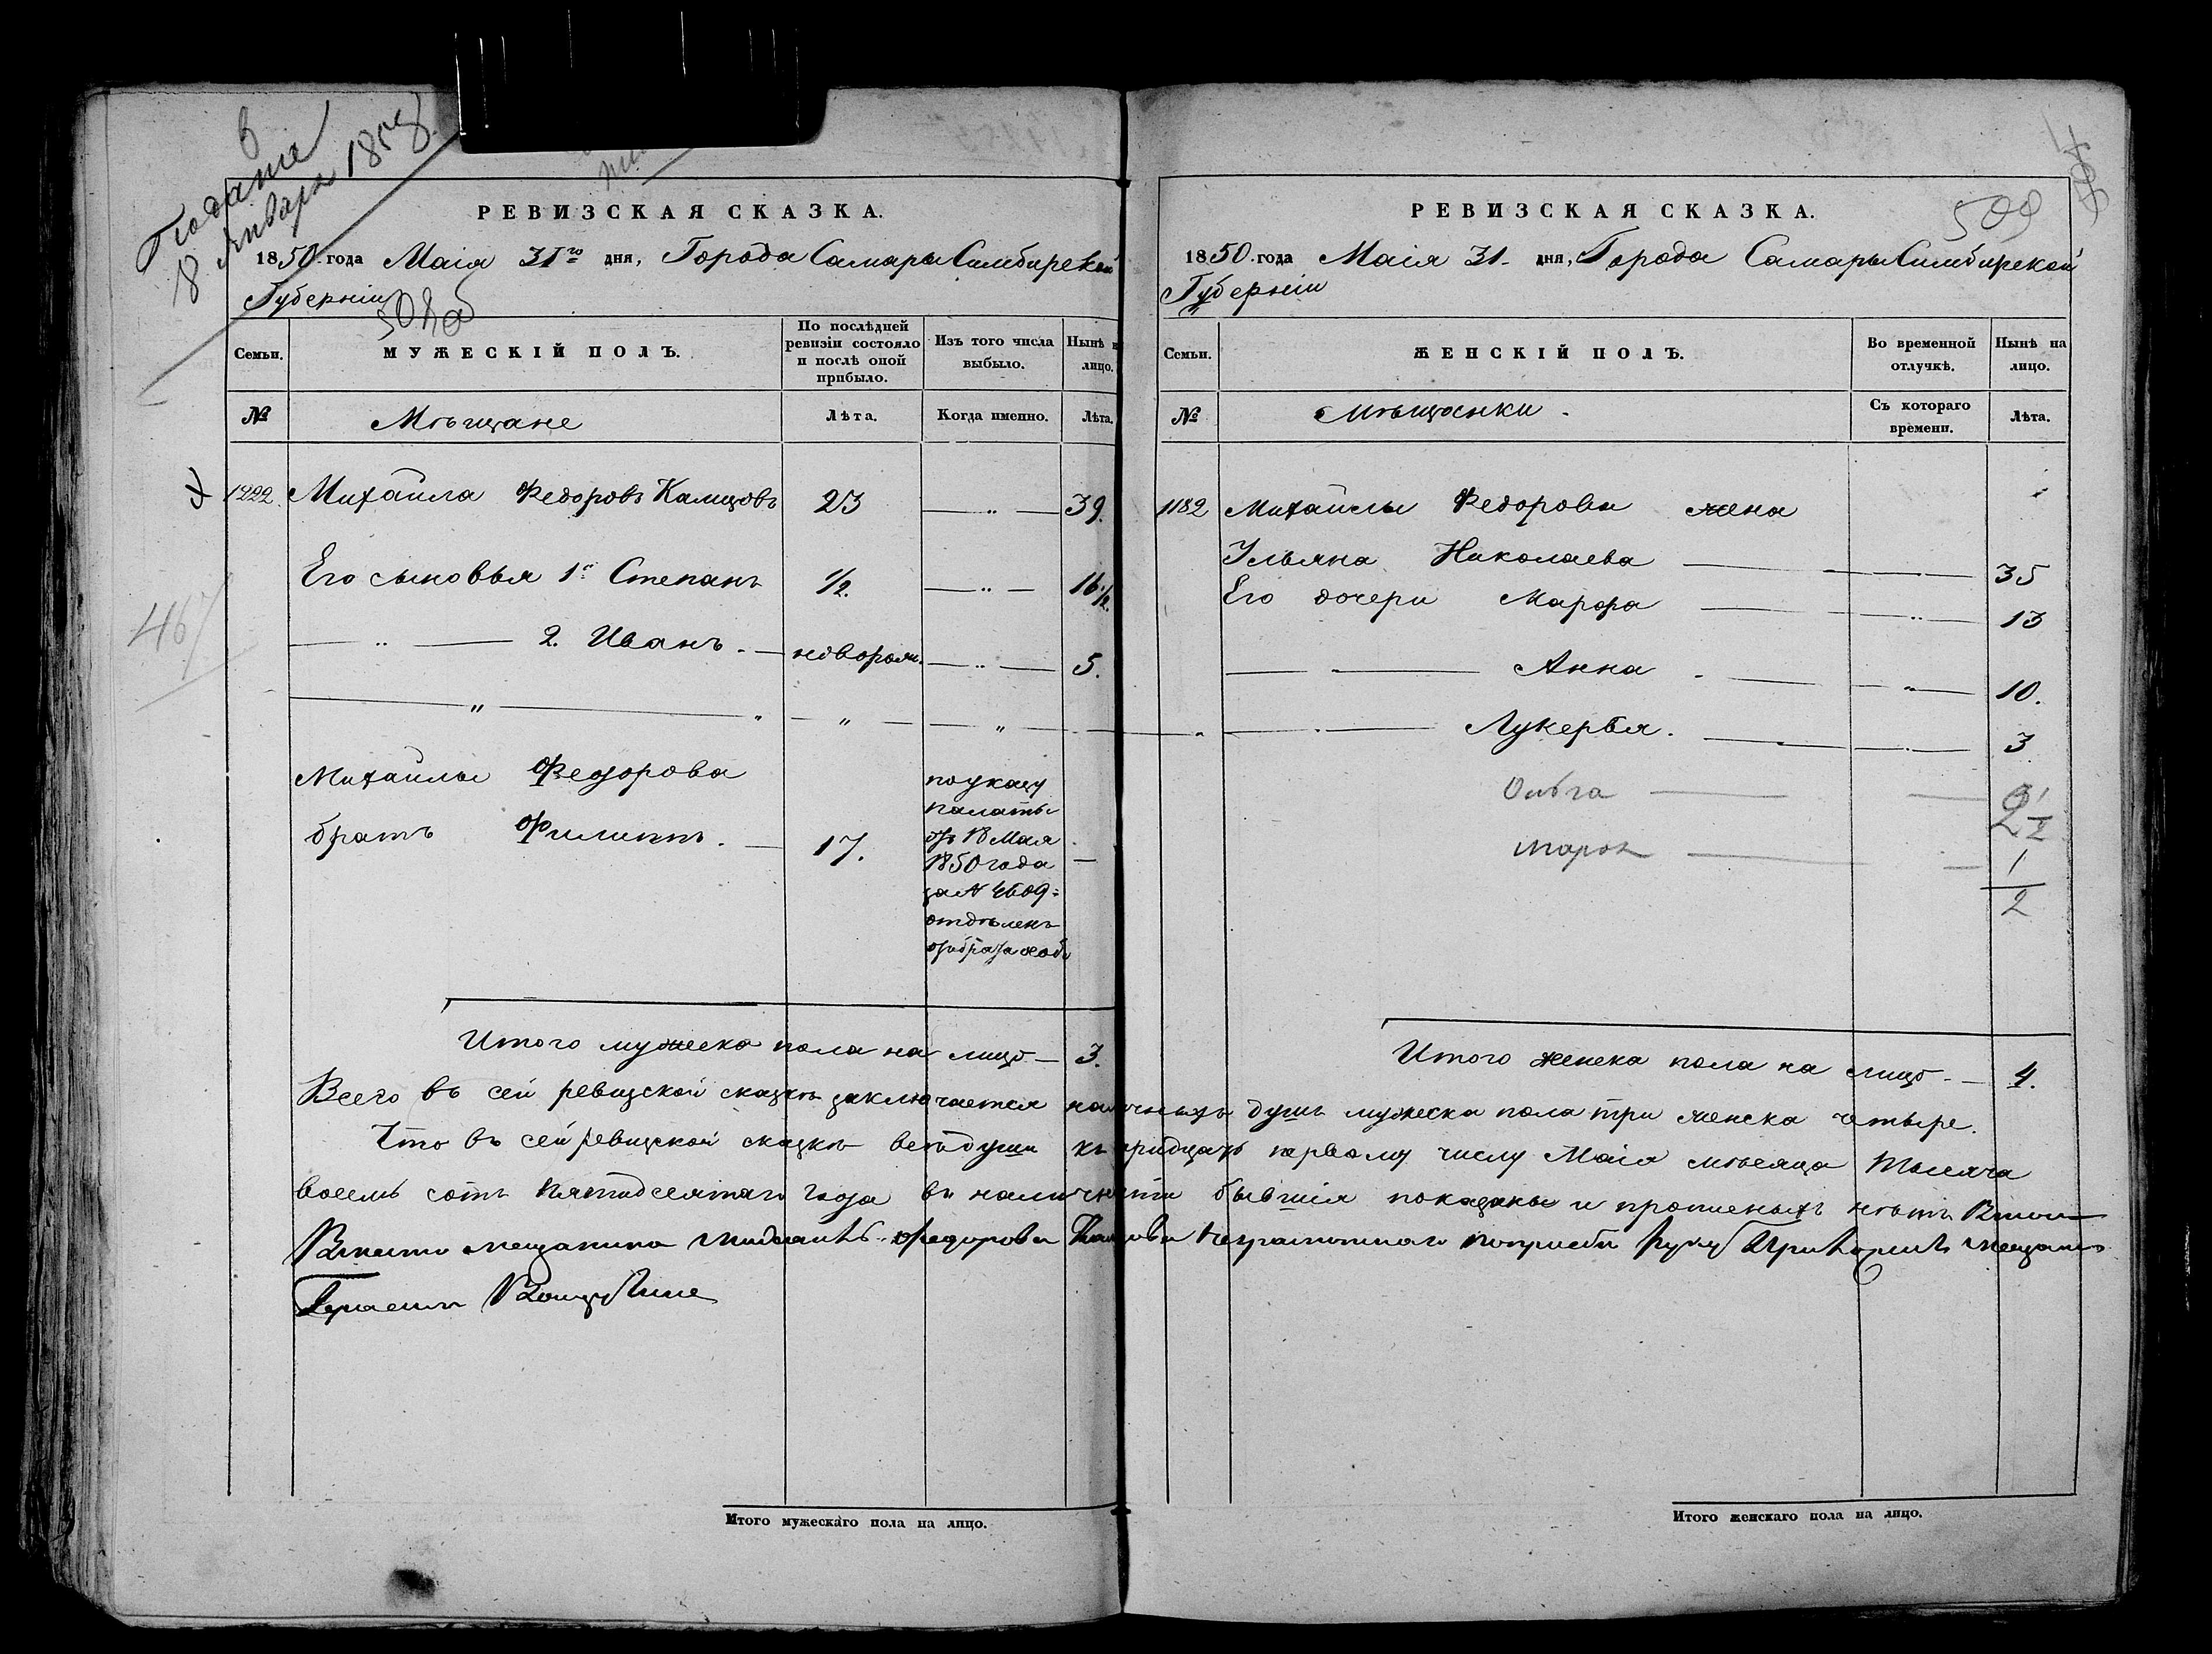 Поданіе
18 Января 1858
РЕВИЗСКАЯ СКАЗКА.
1850 года Маія 31го дня, Города Самары Симбирской
Губерніи
Семьи.
МУЖЕСКІЙ ПОЛЪ.
По послѣдней
ревизіи состояло
и послѣ оной
прибыло.
Изъ того числа
выбыло.
Нынѣ н
лицо.
№
Мѣщане
Лѣта.
Когда именно.
Лѣта.
1222 Михайла Федоровъ 23 — „ — 39.
Его сыновья 1й Степанъ 1/2. — „ — 16 1/2.
— „ — 2. Иванъ. — новорожд. — „ — 5.
— „ — „ — „ — „ —
Михайлы Федорова
братъ Филиппъ. — 17. —
по указу
палаты
отъ 18 Мая
1850 года
за № 4609
отдѣленъ
467
Итого мужеска пола на лицо — 3.
РЕВИЗСКАЯ СКАЗКА.
509
1850 года Маія 31 дня, Города Самары Симбирской
Губерніи
Семьи.
ЖЕНСКІЙ ПОЛЪ.
Во временной
отлучкѣ.
Нынѣ на
лицо.
№
Мѣщанки.
Съ котораго
времени.
Лѣта.
1182 Михайлы Федорова жена
Ульяна Николаева — — 35
Его дочери Марфа — „ — 13
— Анна. — „ — 10.
— Лукерья. — „ — 3
Ольга — — 2 1/2
— — 1/2
Итого женска пола на лицо. — 4.
Всего въ сей ревизской сказкѣ заключается наличныхъ душъ мужеска пола три женска четыре.
Что въ сей ревизской сказкѣ всѣ души къ тридцать первому числу Маія мѣсяца тысяча
восемь сотъ пятидесятаго года въ наличности бывшія показаны и прописныхъ нѣтъ в том
Вместо мещанина Михаилѣ Федорова неграмотнаго руку мещанъ
Итого мужескаго пола на лицо.
Итого женскаго пола на лицо.